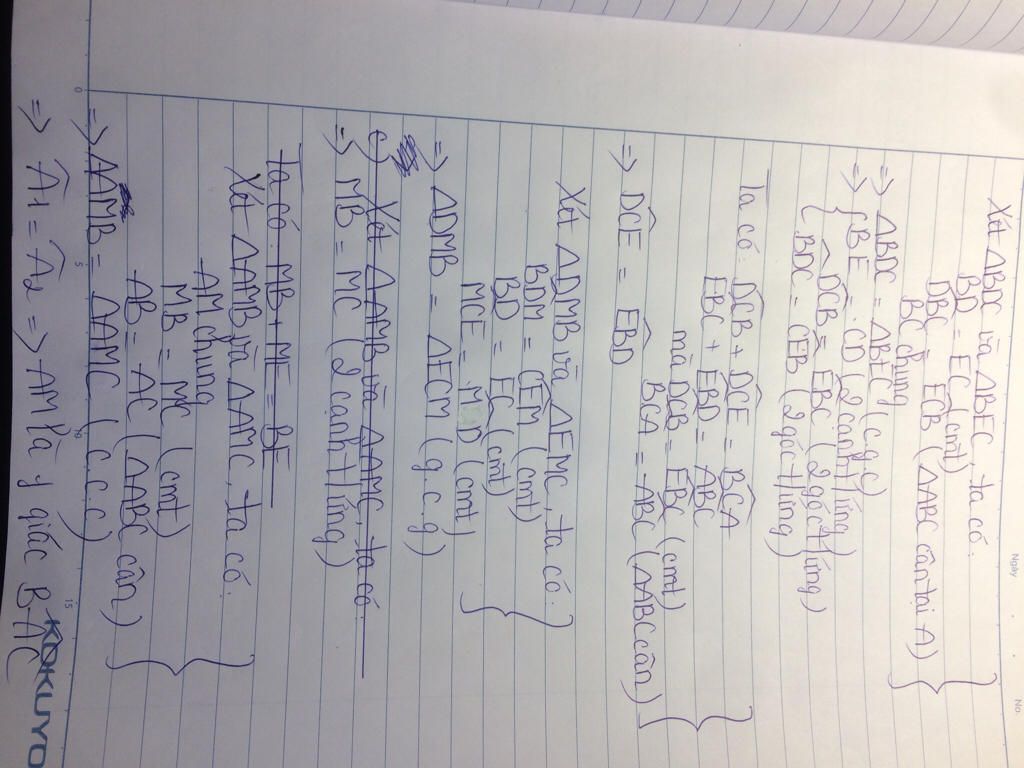 Ngày
No.
Xét ΔBDC và ΔBEC, ta có:
BD = EC (cmt)
DBC = ECB (ΔABC cân tại A)
BC chung
=> ΔBDC = ΔBEC (c.g.c)
=> { BE = CD (2 cạnh t/ứng)
DCB = EBC (2 góc t/ứng)
BDC = CEB (2 góc t/ứng)
Ta có: DCB + DCE = BCA
EBC + EBD = ABC
mà DCB = EBC (cmt)
BCA = ABC (ΔABC cân)
=> DCE = EBD
Xét ΔDMB và ΔEMC, ta có:
BDM = CEM (cmt)
BD = EC (cmt)
MCE = MD (cmt)
=> ΔDMB = ΔECM (g.c.g)
c) Xét ΔAMB và ΔAMC, ta có:
=> MB = MC (2 cạnh t/ứng)
Ta có: MB + ME = BE
Xét ΔAMB và ΔAMC, ta có:
AM chung
MB = MC (cmt)
AB = AC (ΔABC cân)
=> ΔAMB = ΔAMC (c.c.c)
=> A1 = A2 => AM là y giác BAC
0 5 10 15
KOKUYO